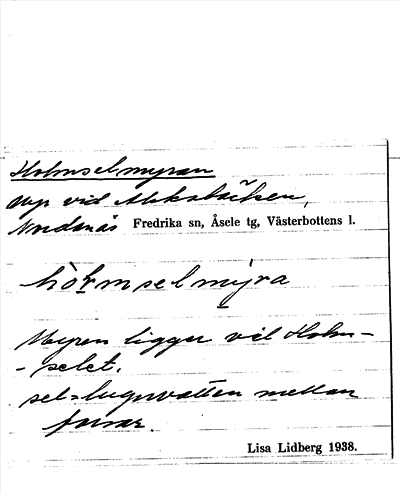 Holmselmyran
Myr vid Akkabäcken,
Nordanås Fredrika sn, Åsele tg, Västerbottens l.
hòłmselmýra
Myren ligger vid Holm-
- selet.
sel = lugnvatten mellan
forsar.
Lisa Lidberg 1938.